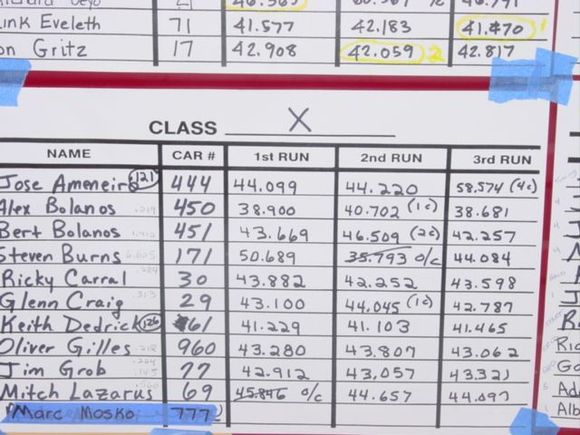 46.565
ink Eveleth 71 41.577 42.183 41.470 1
on Gritz 17 42.908 42.059 2 42.817
CLASS X
NAME CAR # 1st RUN 2nd RUN 3rd RUN
Jose Ameneiro 121 444 44.099 44.220 58.574 (4c)
Alex Bolanos 450 38.900 40.702 (1c) 38.681
Bert Bolanos 451 43.669 46.509 (2c) 42.257
Steven Burns 171 50.689 35.793 o/c 44.084
Ricky Carral 30 43.882 42.252 43.598
Glenn Craig 29 43.100 44.045 (1c) 42.787
Keith Dedrick 126 61 41.229 41.103 41.465
Oliver Gilles 960 43.280 43.807 43.062
Jim Grob 77 42.912 43.057 43.321
Mitch Lazarus 69 45.846 o/c 44.657 44.097
Marc Mosko 777
Ric
Ga
Ad
Alb